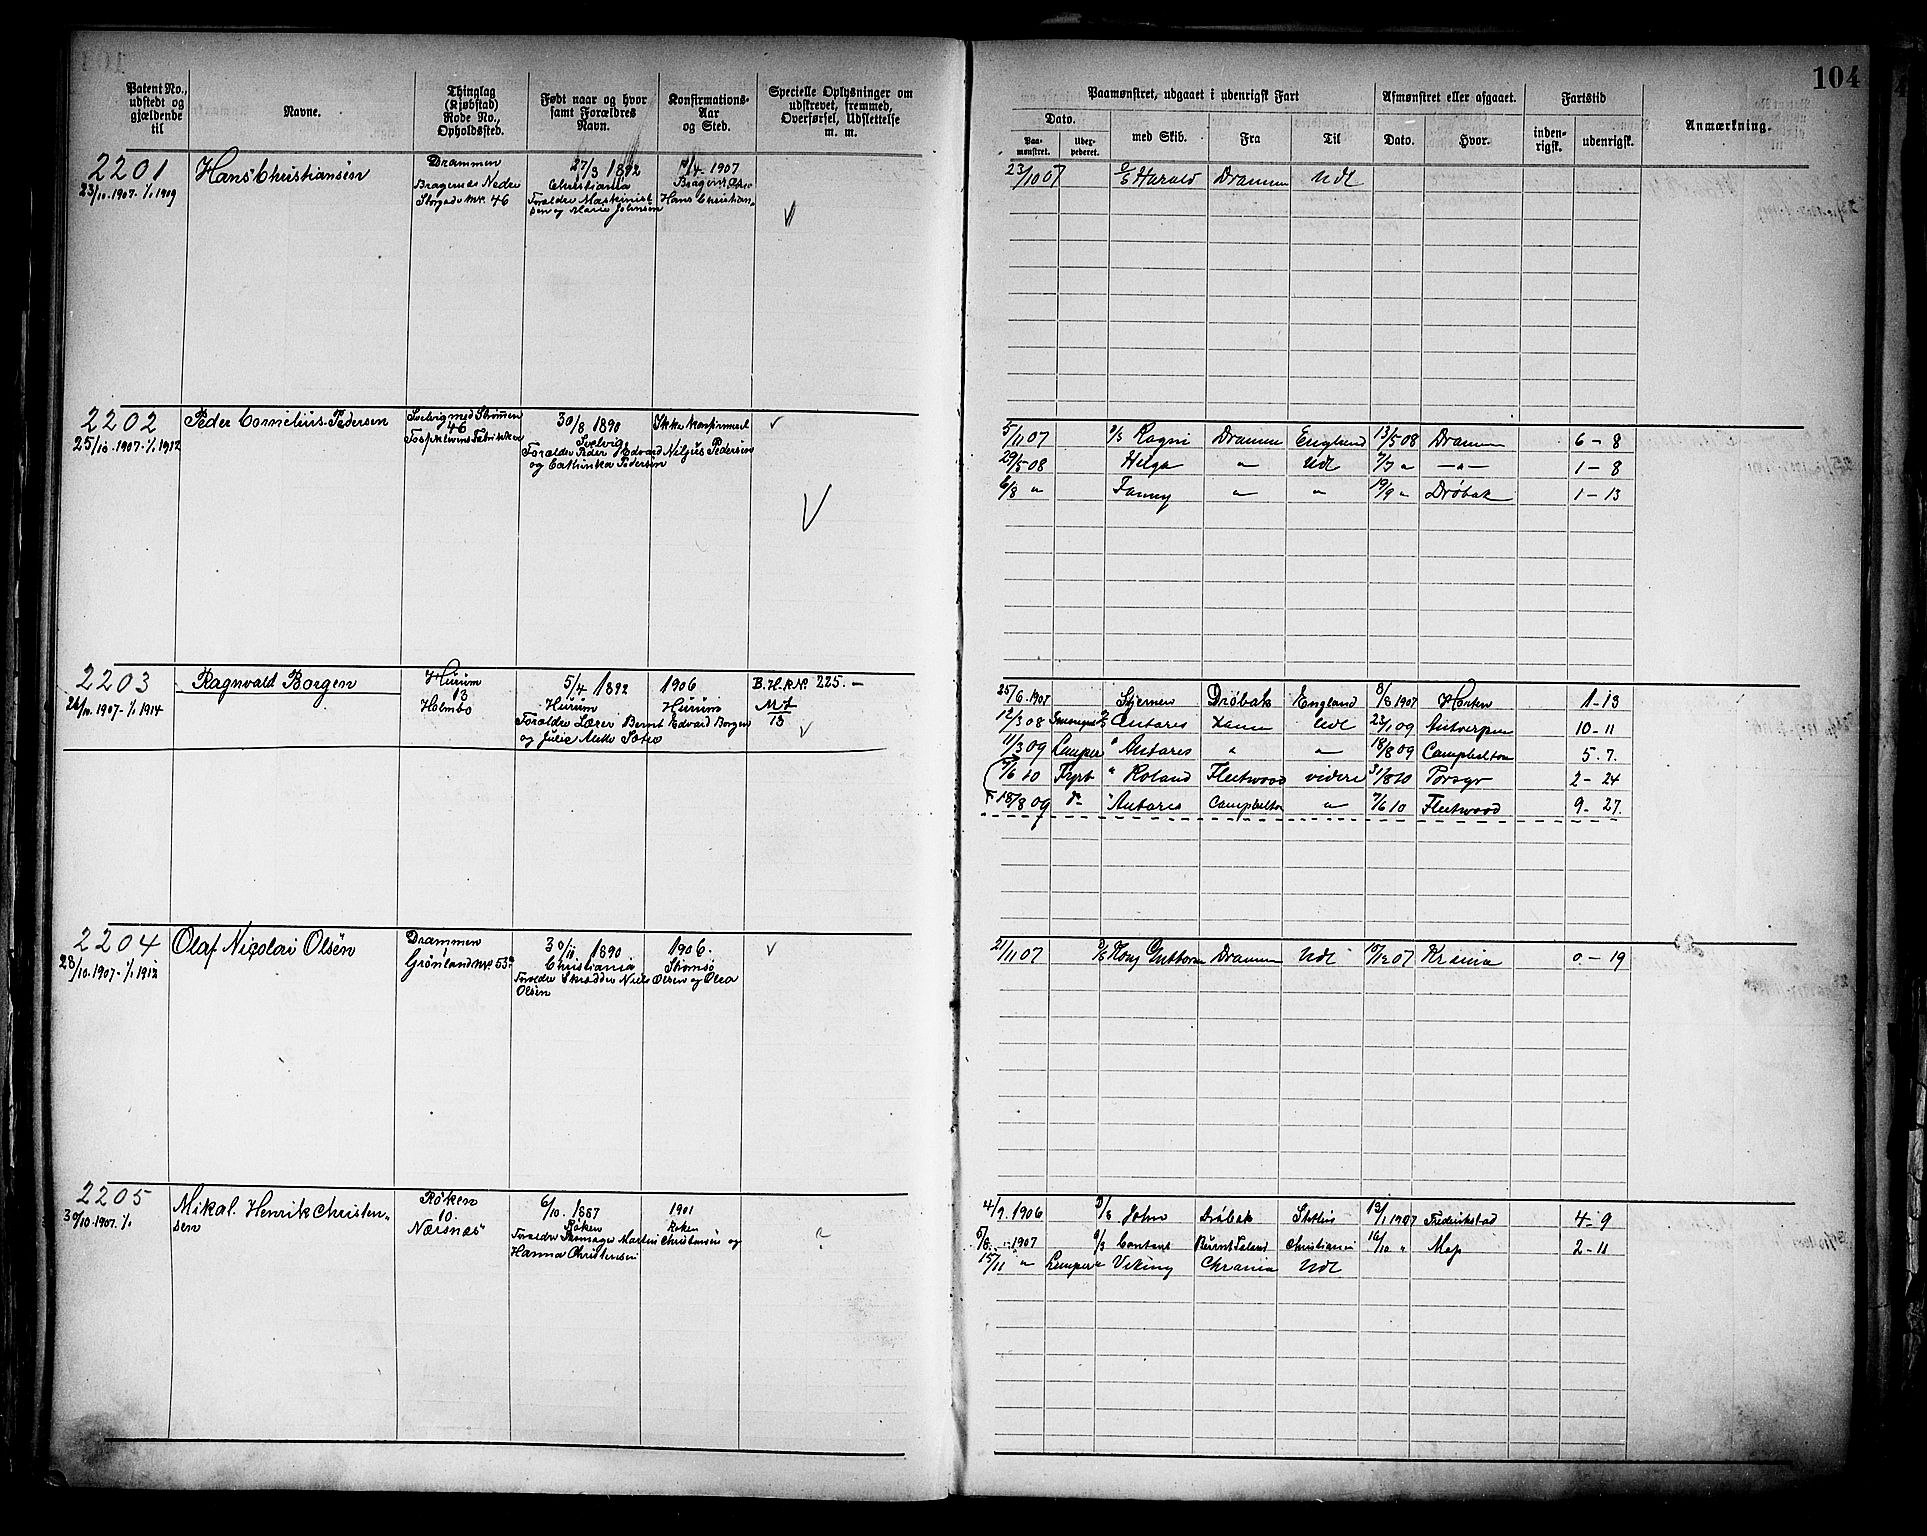 104
Patent No., udstedt og gjældende til
Navne.
Thinglag (Kjøbstad) Rode No., Opholdssted.
Født naar og hvor samt Forældres Navn.
Konfirmations-Aar og Sted.
Specielle Oplysninger om udskrevet, fremmed, Overførsel, Udslettelse m. m.
Paamønstret, udgaaet i udenrigsk Fart
Afmønstret eller afgaaet.
Fartstid
Anmærkning.
Dato.
Paa-mønstret.
med Skib.
Fra
Til
Dato.
Hvor.
inden-rigsk.
udenrigsk.
2201
23/10.1907-1/1 1909
Hans Christiansen
Drammen
Bragernes Nedre
Storgade nr. 46
27/3 1892
Christiania
Forældre Maskinist Hans Christian-
sen og Marie Johnsen
/4. 1907
23/10 07 Harald Drammen Udl
2202
25/10.1907-1/1 1912
Peder Cornelius Pedersen
Svelvig med Strømmen
46
30/8 1890
Svelvig
Forældre Peder Edvard Nilsius Pedersen
og Cathinka Pedersen
Ikke konfirmert
5/11 07 Ragni Drammen England 13/5 08 Drammen 6 - 8
29/5 08 Helga " Udl 7/7 " -"- 1 - 8
6/8 " Fanny " " 19/9 " Drøbak 1 - 13
2203
26/10.1907-1/1 1914
Ragnvald Borgen
Hurum
13
Holmbo
5/4 1892
Hurum
Forældre Lærer Bernt Edvard Borgen
og Julie Alette Sætre
1906
Hurum
B.H.R.N. 225.-
M 7
13
25/6.1907 Stjernen Drøbak England 8/8 1907 Horten 1 - 13
12/3 08 Antares Udl 23/1 09 Antwerpen 10 - 11
11/3 09 Lemper " Antares " " 18/8 09 Campbelton 5. 7.
7/6 10 Fyrb " Roland Fleetwood videre 31/8 10 Porsgr 2 - 24
18/8 09 " Antares Campbelton " 7/6 10 Fleetwood 9 - 27.
2204
28/10.1907-1/1 1912
Olaf Nicolai Olsen
Drammen
Grønland nr. 53
30/11 1890
Christiania
Forældre Skrædder Niels Olsen og Olea
Olsen
1906.
Strømsø
21/11 07 Kong Guttorm Drammen Udl 10/12 07 Krania 0 - 19
2205
30/10.1907. 1/1
Mikal. Henrik Christen-
sen
Røken
10.
Nærsnæs
6/10. 1887
Røken
Forældre Skomager Martin Christensen og
Hanna Christensen
1901
Røken
4/9.1906 John Drøbak Stettin 13/1 1907 Fredrikstad 4 - 9
1907 Constant Burnt Island Christiania 16/10 " Moss 2 - 11
15/11 " Lemper " Viking Chrania Udl